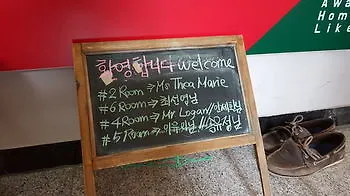 Awa
Home
Like
환영합니다 welcome
#2 Room ⇒ Ms Thea Marie
#6 Room ⇒ 최선영님
#4 Room ⇒ Mr Logan//
#5 Room ⇒